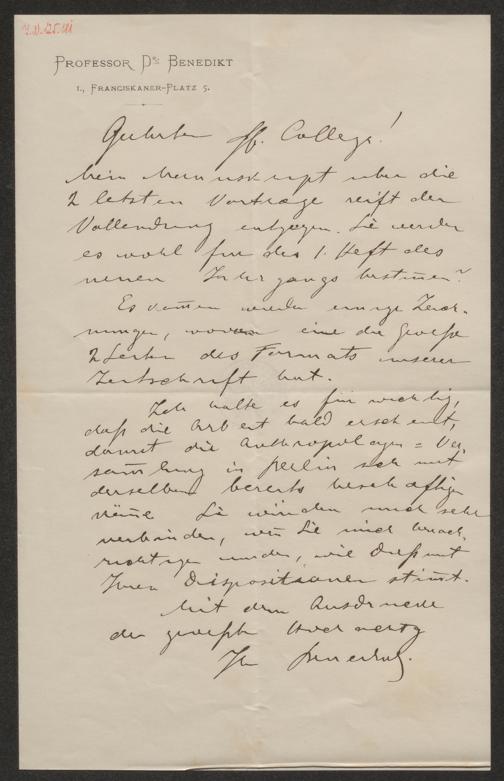 PROFESSOR DR BENEDIKT
I., FRANCISKANER-PLATZ 5.
Geehrter H. College!
Mein Manuskript über die
2 letzten Vorträge reift der
Vollendung entgegen. Sie werden
es wohl für das 1. Heft des
neuen Jahrgangs bestimen?
Es komen wieder einige Zeich-
nungen, wovon eine die Groeße
2 Seiten des Formats unserer
Zeitschrift hat.
Ich halte es für wichtig,
daß die Arbeit bald erscheint,
damit die Anthropologen=Ver-
samlung in Berlin sich mit
derselben bereits beschäftigen
könne. Sie würden mich sehr
verbinden, wen Sie mich benach-
richtigen würden, wie dieß mit
Ihren Dispositionen stimt.
Mit dem Ausdrucke
der
Ihr Benedikt.